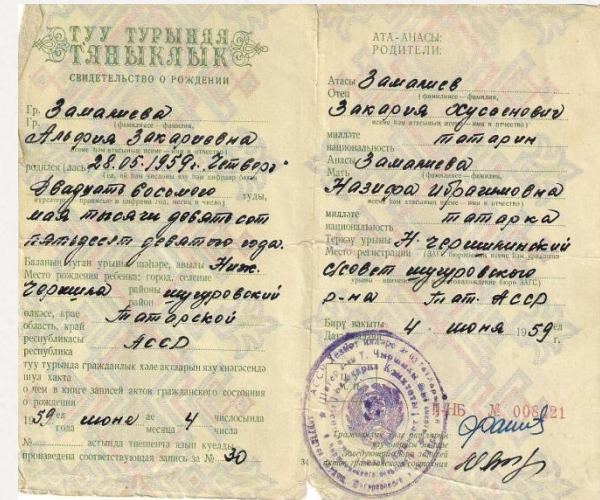 ТУУ ТУРЫНДА
ТАНЫКЛЫК
СВИДЕТЕЛЬСТВО О РОЖДЕНИИ
Гр. Замалиева
Гр. (фамилиясе — фамилия,
Альфия Закариевна
исеме һәм атасының исеме — имя и отчество)
родился(лась) 28.05.1959г. Четверг
(ел, ай һәм числосы язу һәм цифрлар белән)
Двадцать восьмого туды,
мая тысяча девятьсот
пятьдесят девятого года.
Баланың туган урыны: шәһәре, авылы Ниж.
Место рождения ребенка: город, селение
Чершила районы шугуровский
район
өлкәсе, крае Татарской
область, край
республикасы АССР
республика
туу турында гражданлык хәле актларын язу кенәгәсендә
шул хакта
о чем в книге записей актов гражданского состояния
о рождении
1959 ел июне ае 4 числосында
года месяца числа
№ астында тиешенчә язып куелды
произведена соответствующая запись за № 30
АТА-АНАСЫ:
РОДИТЕЛИ:
Атасы Замалиев
Отец (фамилиясе — фамилия)
Закария Хусаенович
исеме һәм атасының исеме — имя и отчество)
милләте татарин
национальность
Анасы Замалиева
Мать (фамилиясе — фамилия)
Назифа Ибрагимовна
исеме һәм атасының исеме — имя и отчество)
милләте татарка
национальность
Теркәү урыны Н. Чершилинский
Место регистрации
с/совет шугуровского
урыны — наименование и местонахождение бюро ЗАГС)
р-на Тат. АССР
Бирү вакыты 4 июня 1959 ел
Дата выдачи г.
№ 008121
Гражданлык хәле актларын
язу бюросы мөдире
Заведующий бюро записей
актов гражданского состояния
34